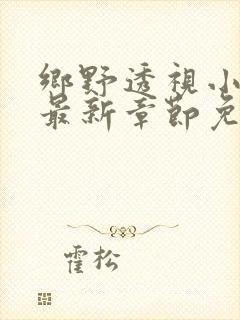 鄉野透視小
最新章節免
霍松